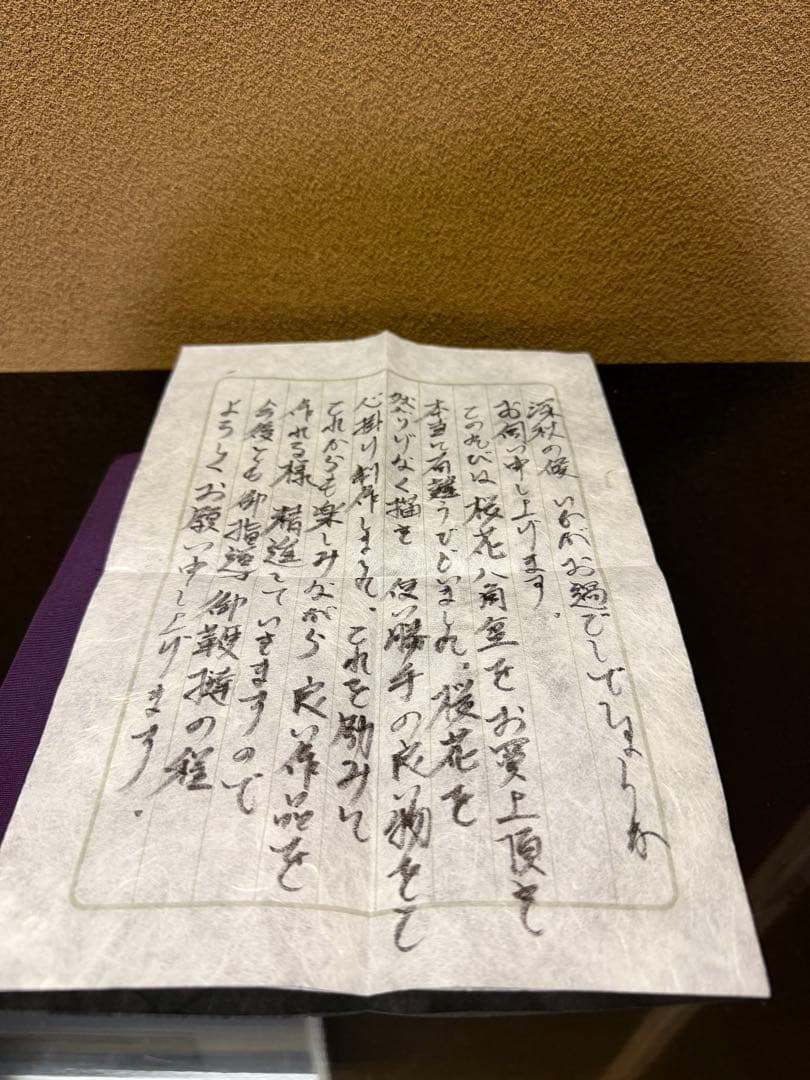 深秋の候 いかがお過ごしでしょうか
お伺い申し上げます。
このたびは桜花八角皿をお買上頂き
本当に有難うございました。桜花を
さりげなく描き 使い勝手の良い物をと
心掛け制作しました。これを励みに
これからも楽しみながら 良い作品を
作れる様 精進していきますので
今後とも御指導 御鞭撻の程
よろしくお願い申し上げます。